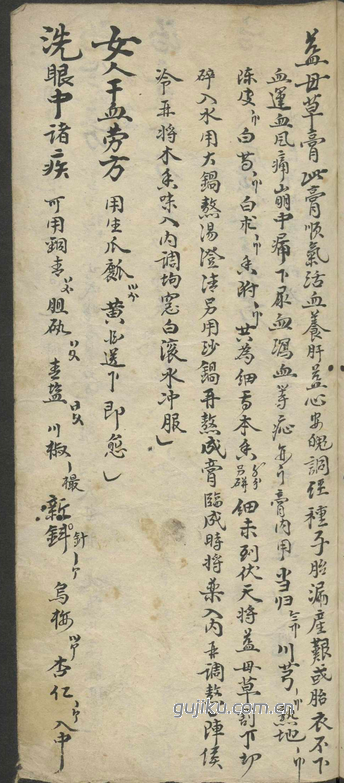 益母草膏 此膏順氣活血養肝益心安魄調経種子胎漏產艱或胎衣不下
血運血風痛崩中漏下尿血瀉血等症 每 膏內用当归 川芎 熟地
陈皮 白芍 白术 香附 共為細 木香 另研 細末到伏天將益母草割下切
碎入水用大鍋熬湯澄清另用沙鍋再熬成膏臨成時將藥入內再調 陣候
冷再将木香味入內調均 白滚水冲服
女人干血劳方 用生瓜瓤 黄 送下即愈
洗眼中诸疾 可用銅青 胆矾 青盐 川椒 一撮 新 針 烏梅 杏仁 入
gujiku.com.cn